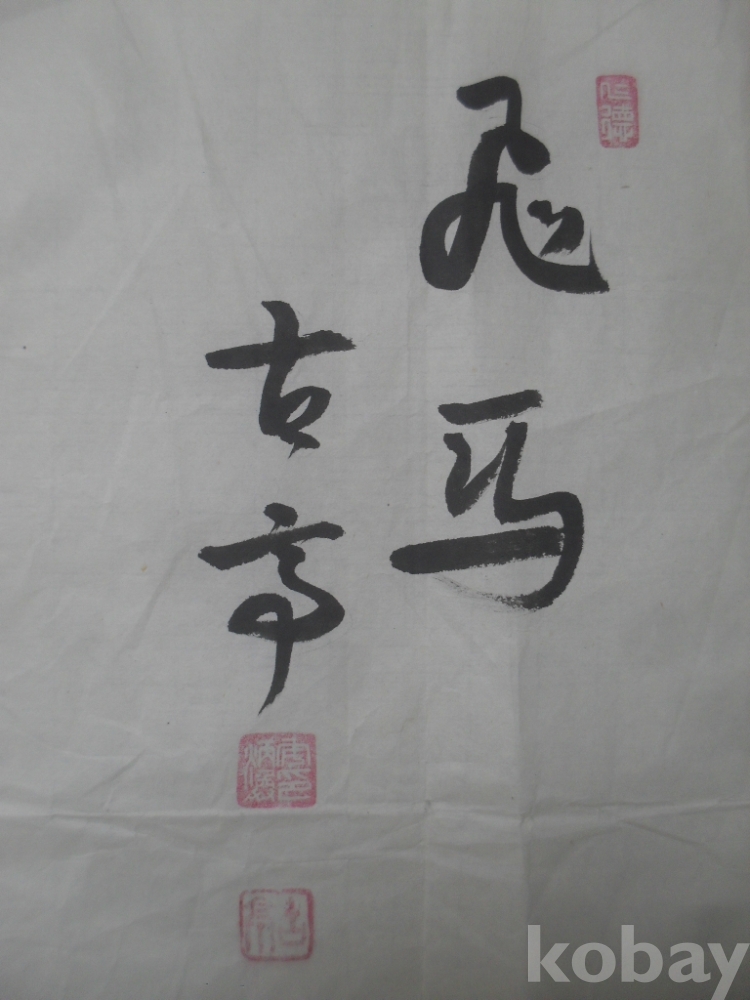 飛馬
古亭
古亭
kobay